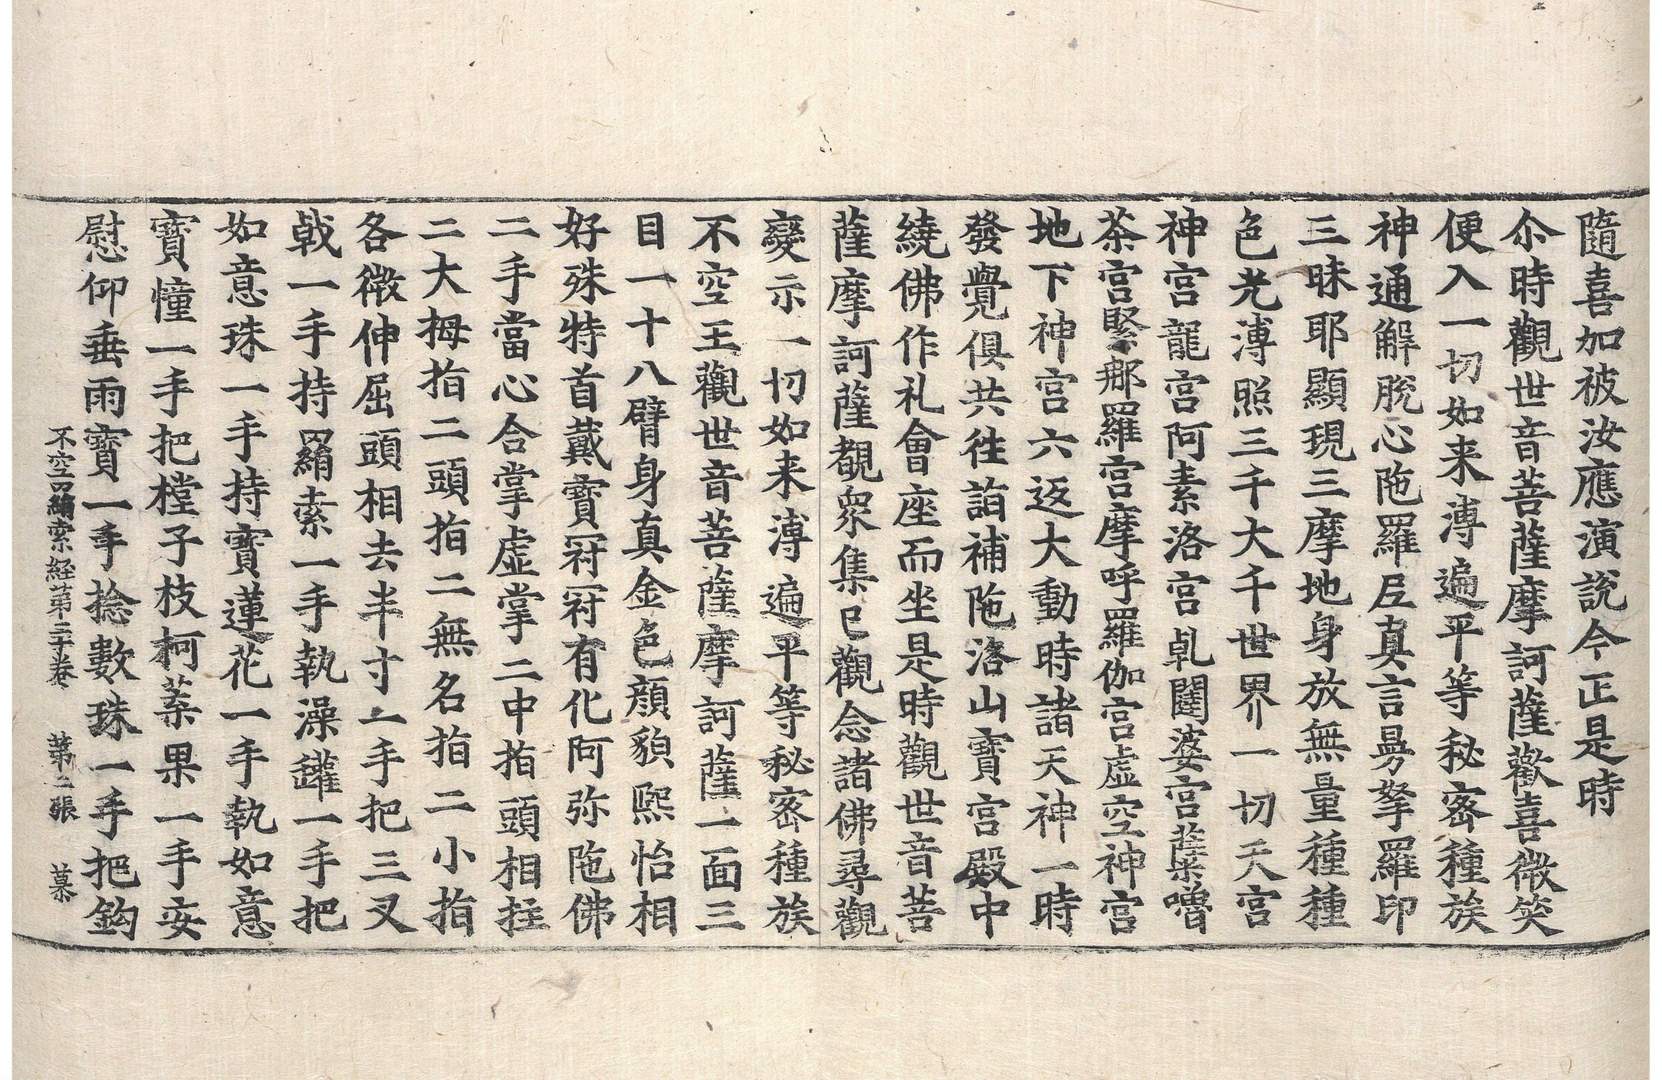 隨喜加被汝應演說今正是時
尒時觀世音菩薩摩訶薩歡喜微笑
便入一切如来溥遍平等秘密種族
神通解脫心陁羅尼真言曼拏羅印
三昧耶顯現三摩地身放無量種種
色光溥照三千大千世界一切天宮
神宮龍宮阿素洛宮乹闥婆宮蘖嚕
茶宮緊那羅宮摩呼羅伽宮虛空神宮
地下神宮六返大動時諸天神一時
發覺俱共徃詣補陁洛山寶宮殿中
繞佛作礼會座而坐是時觀世音菩
薩摩訶薩覩衆集已觀念諸佛尋觀
變示一切如来溥遍平等秘密種族
不空王觀世音菩薩摩訶薩一面三
目一十八臂身真金色顔貌熙怡相
好殊特首戴寶冠冠有化阿弥陁佛
二手當心合掌虛掌二中指頭相拄
二大拇指二頭指二無名指二小指
各微伸屈頭相去半寸一手把三叉
戟一手持羂索一手執澡罐一手把
如意珠一手持寶蓮花一手執如意
寶幢一手把樘子枝柯葉果一手安
慰仰垂雨寶一手捻數珠一手把鈎
不空羂索経第二十卷 第二張 慕